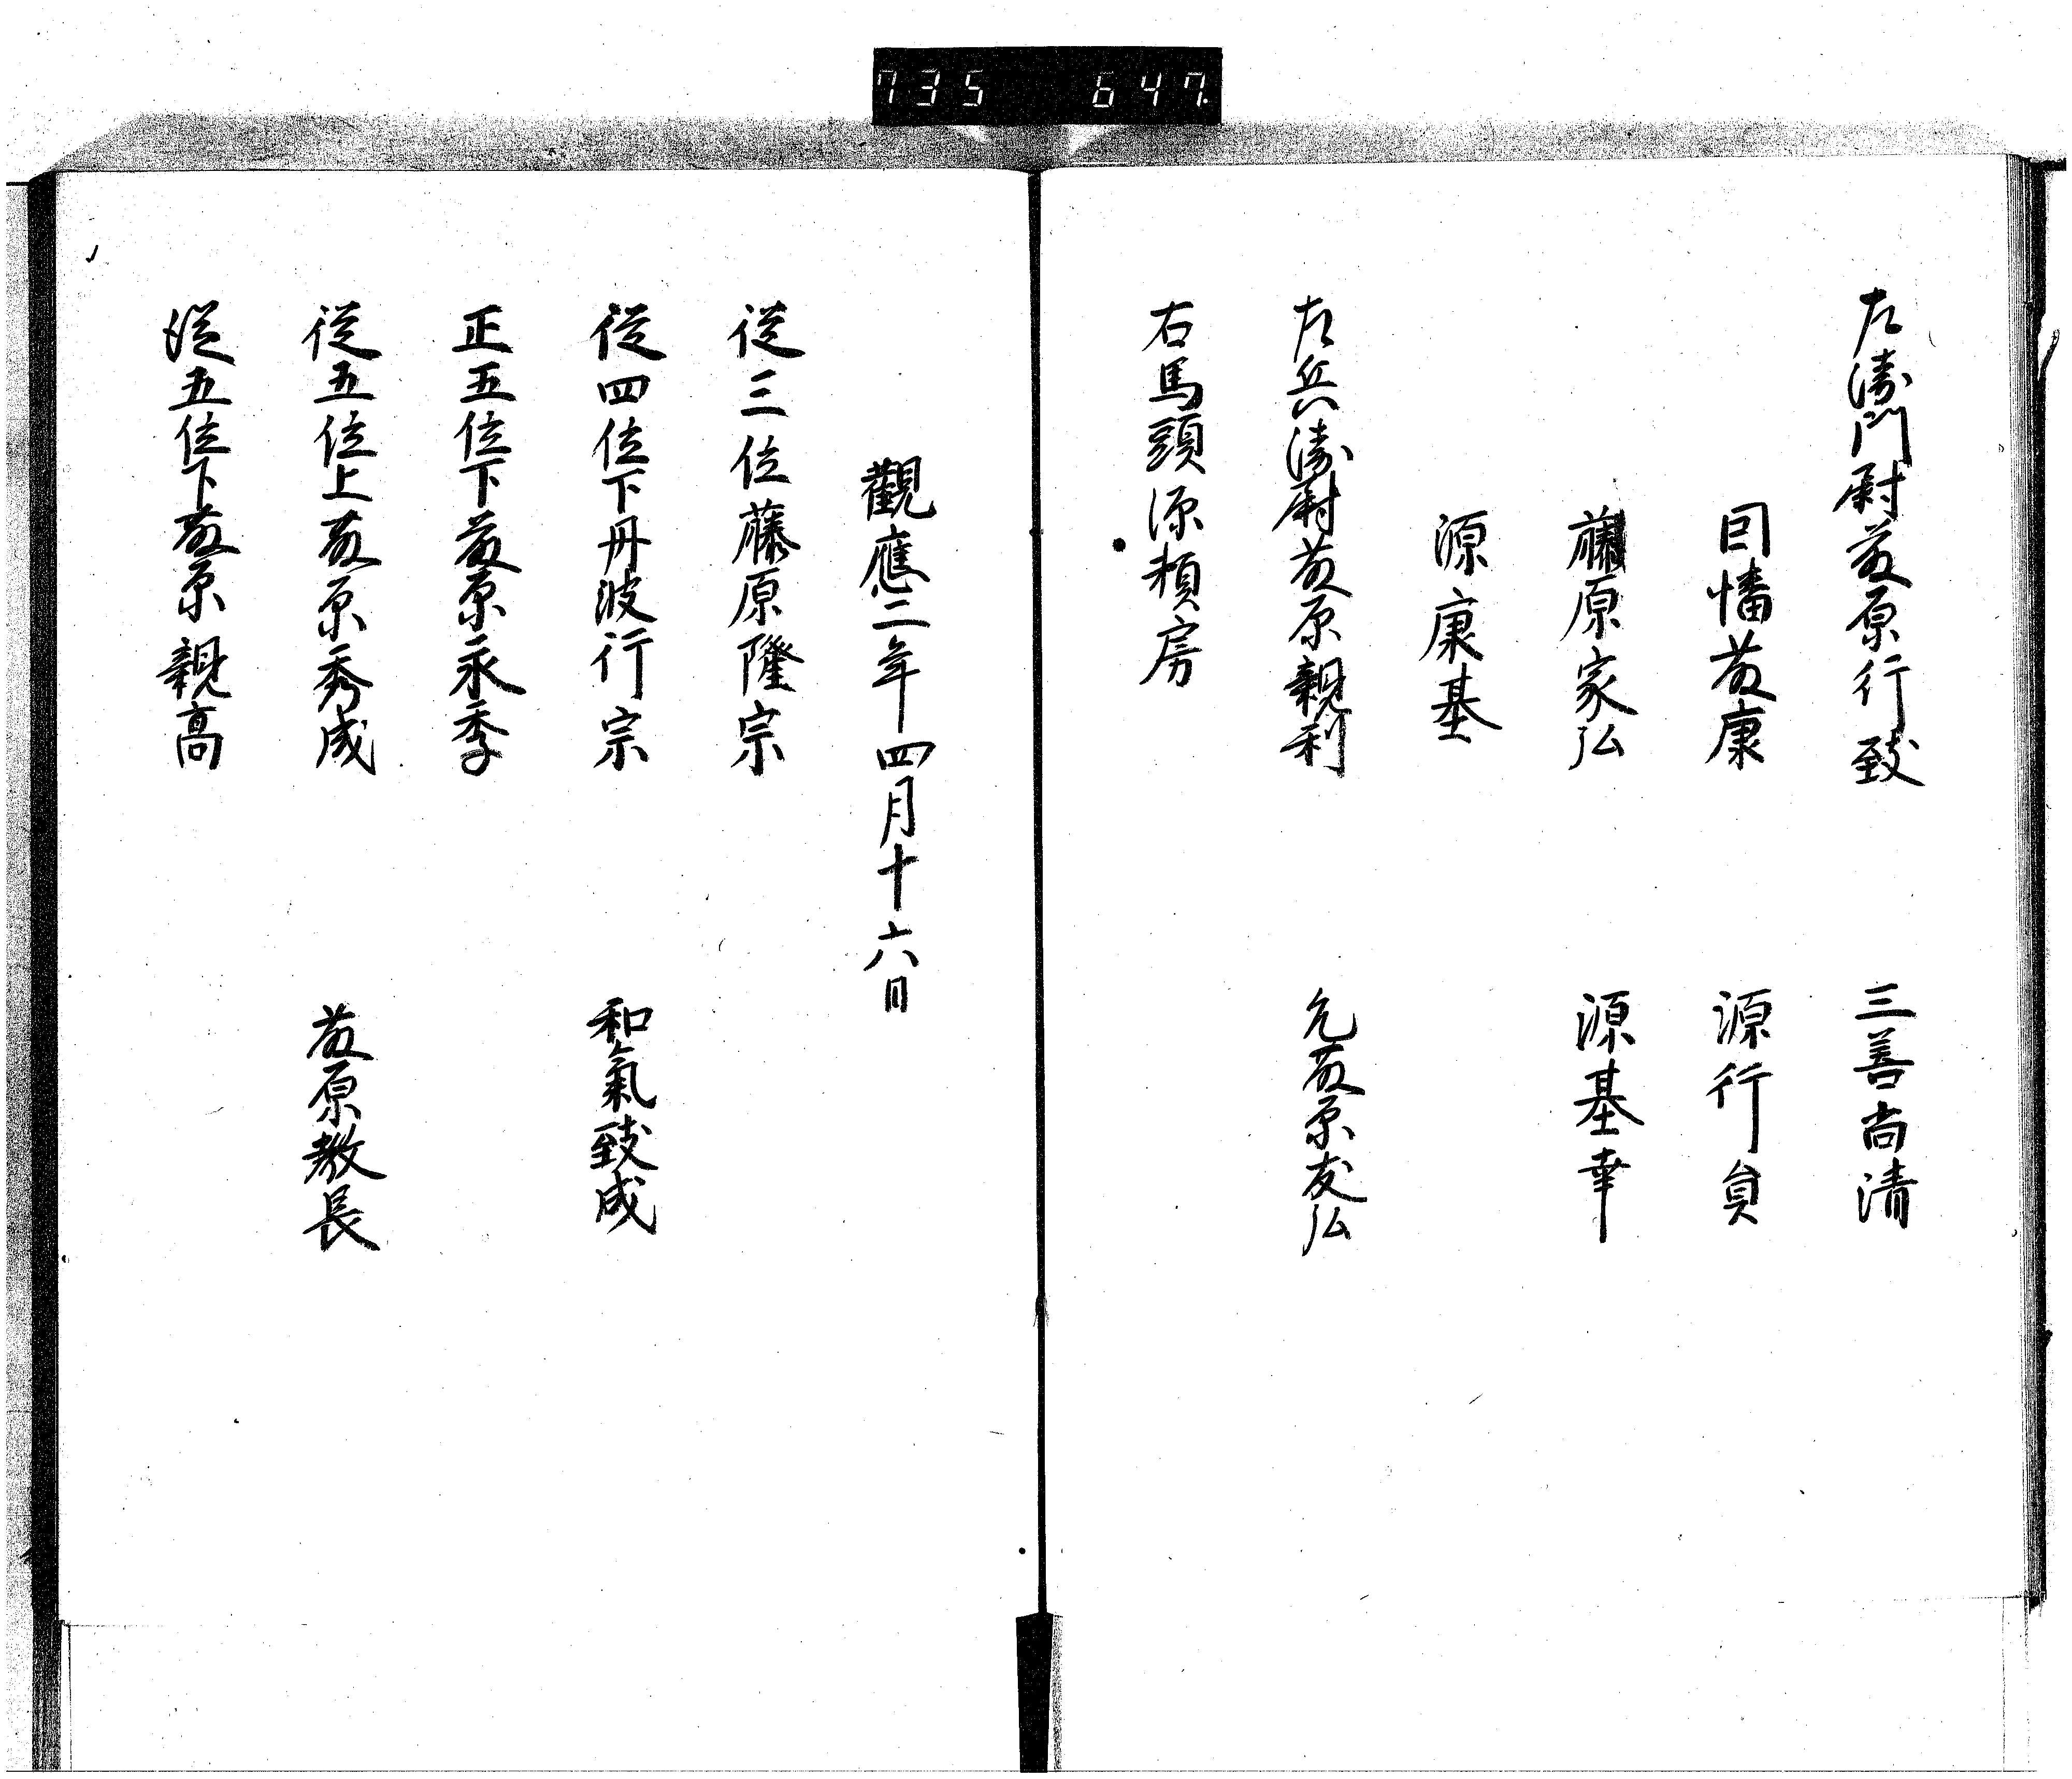 735 647
左衛門尉藤原行致 三善尚清
因幡藤康 源行員
藤原家弘 源基幸
源康基
左兵衛尉藤原親利 允藤原友弘
右馬頭源頼房
觀應二年四月十六日
従三位藤原隆宗
従四位下丹波行宗 和氣致成
正五位下藤原永季
従五位上藤原秀成 藤原教長
従五位下藤原親高